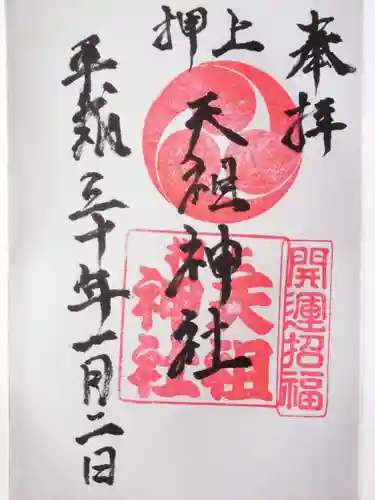 奉拝
押上
天祖神社
天祖
神社
開運招福
平成三十年一月二日